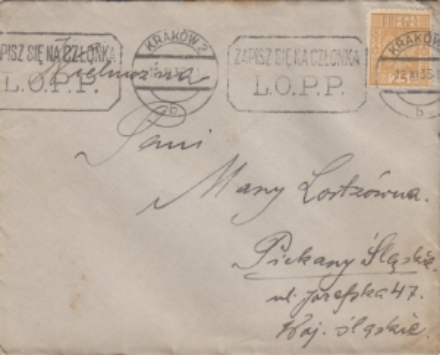 ZAPISZ SIĘ NA CZŁONKA
L.O.P.P.
KRAKÓW 2
b
ZAPISZ SIĘ NA CZŁONKA
L.O.P.P.
KRAKÓW
XI 35
b
Pani
Many Lortzówna.
Piekany Śląskie.
ul. Józefska 47.
Woj. śląskie.